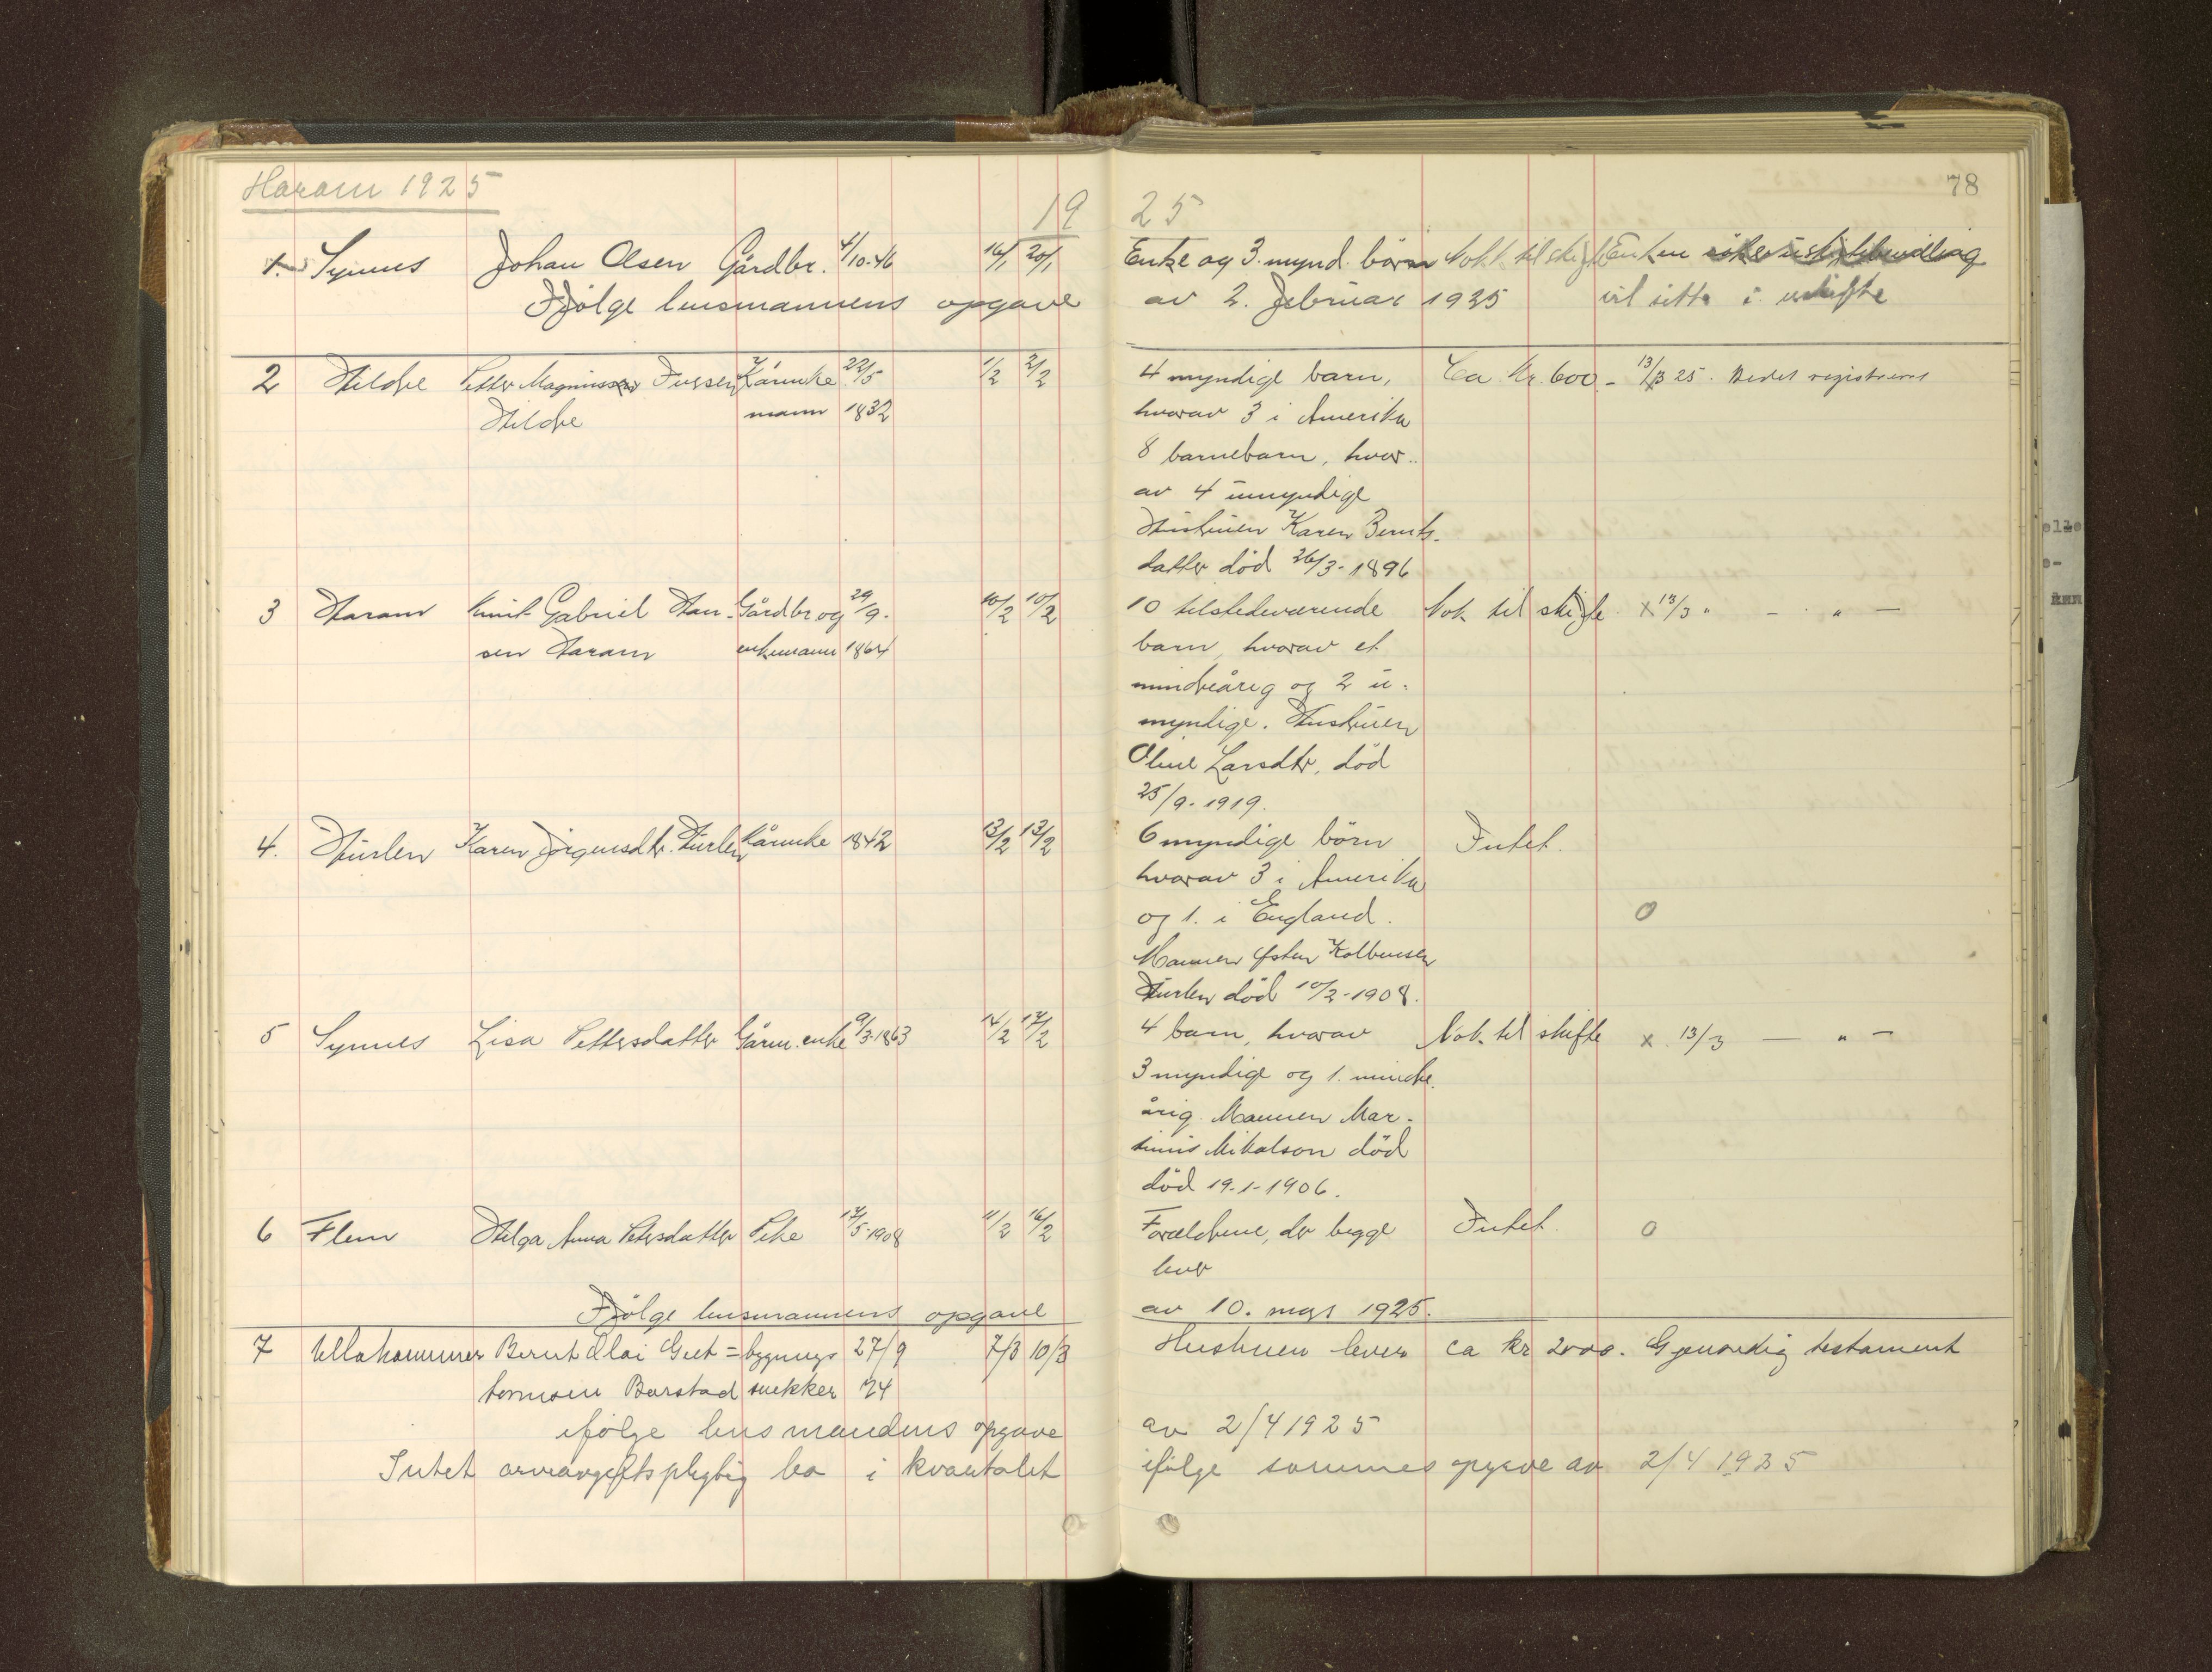 Haram 1925
19 25
78
1. Synnes Johan Olsen Gårdbr. 4/10-46 16/1 20/1 Enke og 3 mynd. børn Nok til skifte Enken söker uskiftebevilling
Ifølge lensmannens opgave av 2. februar 1925 vil sitte i uskifte
2 Hildre Petter Magnussen Kårenke 22/5 1/2 2/2 4 myndige barn, Ca Kr. 600.- 13/3 25. Bedes registreret
Hildre mann 1832 hvorav 3 i Amerika
8 barnebarn, hvor-
av 4 umyndige
Hustruen Karen Bernts-
datter död 26/3-1896
3 Haram Knut Gabriel Han- Gårdbr og 29/9- 10/2 10/2 10 tilstedeværende Nok til skifte x 13/3 " — " —
sen Haram enkemann 1864 barn, hvorav et
mindreårig og 2 u-
myndige. Hustruen
Oline Larsdtr. död
25/9-1919.
4. Hurlen Karen Jörgensdtr. Hurlen Kårenke 1842 13/2 13/2 6 myndige börn Intet.
hvorav 3 i Amerika
og 1. i England. 0
Mannen Østen Kolbensen
Hurlen död 10/2-1908.
5 Synnes Lisa Pettersdatter Gårm. enke 9/3-1863 14/2 17/2 4 barn, hvorav Nok til skifte x 13/3 — " —
3 myndige og 1. mindre-
årig. Mannen Mar-
tinus Mikalson död
död 19-1-1906.
6 Flem Helga Anna Petersdatter Pike 17/5-1908 11/2 16/2 Forældrene, der begge Intet. 0
lever
Ifølge lensmannens opgave av 10. mars 1925.
7 Ullahammer Bernt Olai Gut= bygnings 27/9 7/3 10/3 Hustruen lever ca kr 2000. Gjensidig testament
tormsen Barstad snekker 74
ifølge lensmandens opgave av 2/4 1925
Intet arveavgiftspligtig bo i kvartalet ifølge sammes opgave av 2/4 1925